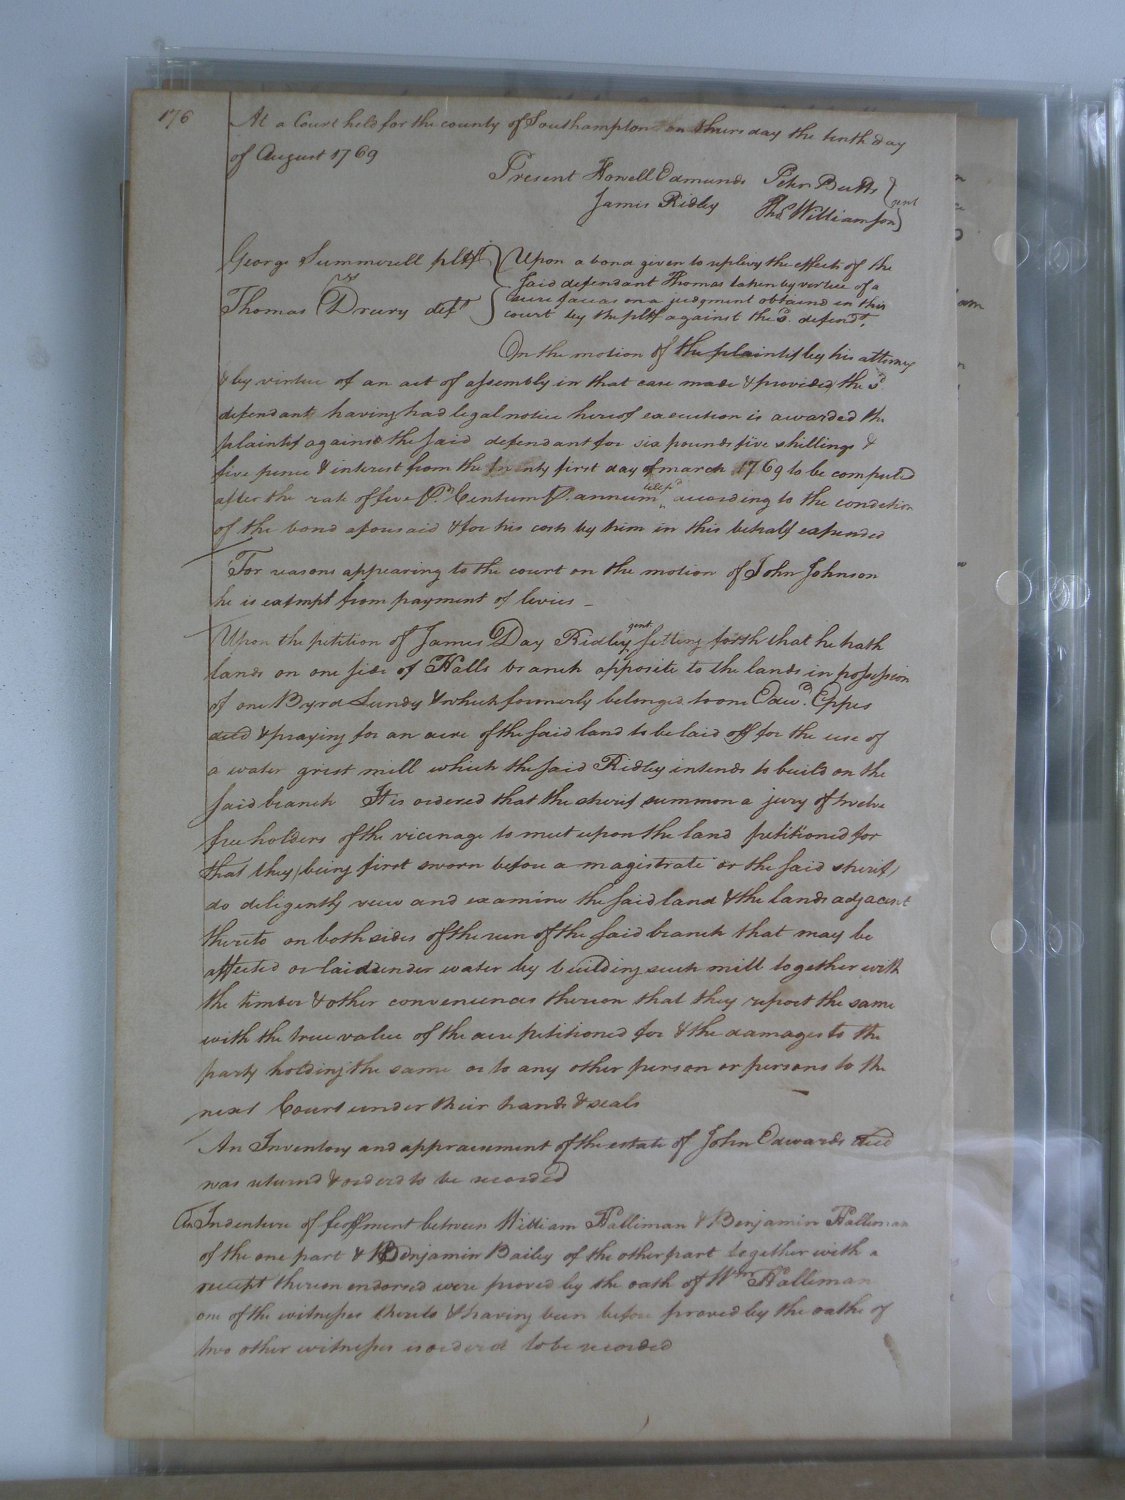 176
At a Court held for the county of Southampton on thursday the tenth day
of August 1769
Present Howell Edmunds Peter Butts
James Ridley Thos Williamson gent
George Summerell pltf
vs
Thomas Drury deft
Upon a bond given to replevy the effects of the
said defendant Thomas taken by virtue of a
fieri facias on a judgment obtaind in this
court by the pltf against the sd. defendt.
On the motion of the plaintif by his attorney
& by virtue of an act of assembly in that case made & provided the sd.
defendant having had legal notice hereof execution is awarded the
plaintif against the said defendant for six pounds five shillings &
five pence & interest from the twenty first day of march 1769 to be computed
after the rate of five Pr. Centum P. annum according to the condition
of the bond aforesaid & for his costs by him in this behalf expended
For reasons appearing to the court on the motion of John Johnson
he is exempt from payment of levies
Upon the petition of James Day Ridley gent setting forth that he hath
lands on one side of Halls branch opposite to the lands in possession
of one Byrd Lundy & which formerly belonged to one Edwd. Eppes
decd & praying for an acre of the said land to be laid off for the use of
a water grist mill which the said Ridley intends to build on the
said branch It is ordered that the sherif summon a jury of twelve
free holders of the vicinage to meet upon the land petitioned for
that they (being first sworn before a magistrate or the said sherif)
do deligently view and examine the said land & the lands adjacent
thereto on both sides of the run of the said branch that may be
affected or laid under water by building such mill together with
the timber & other conveniences thereon that they report the same
with the true value of the acre petitioned for & the damages to the
party holding the same or to any other person or persons to the
next Court under their hands & seals
An Inventory and appraisement of the estate of John Edwards decd
was returnd & orderd to be recorded
An Indenture of feoffment between William Halliman & Benjamin Halliman
of the one part & Benjamin Bailey of the other part together with a
receipt thereon endorsed were proved by the oath of Wm Halliman
one of the witnesses thereto & having been before proved by the oaths of
two other witnesses is orderd to be recorded